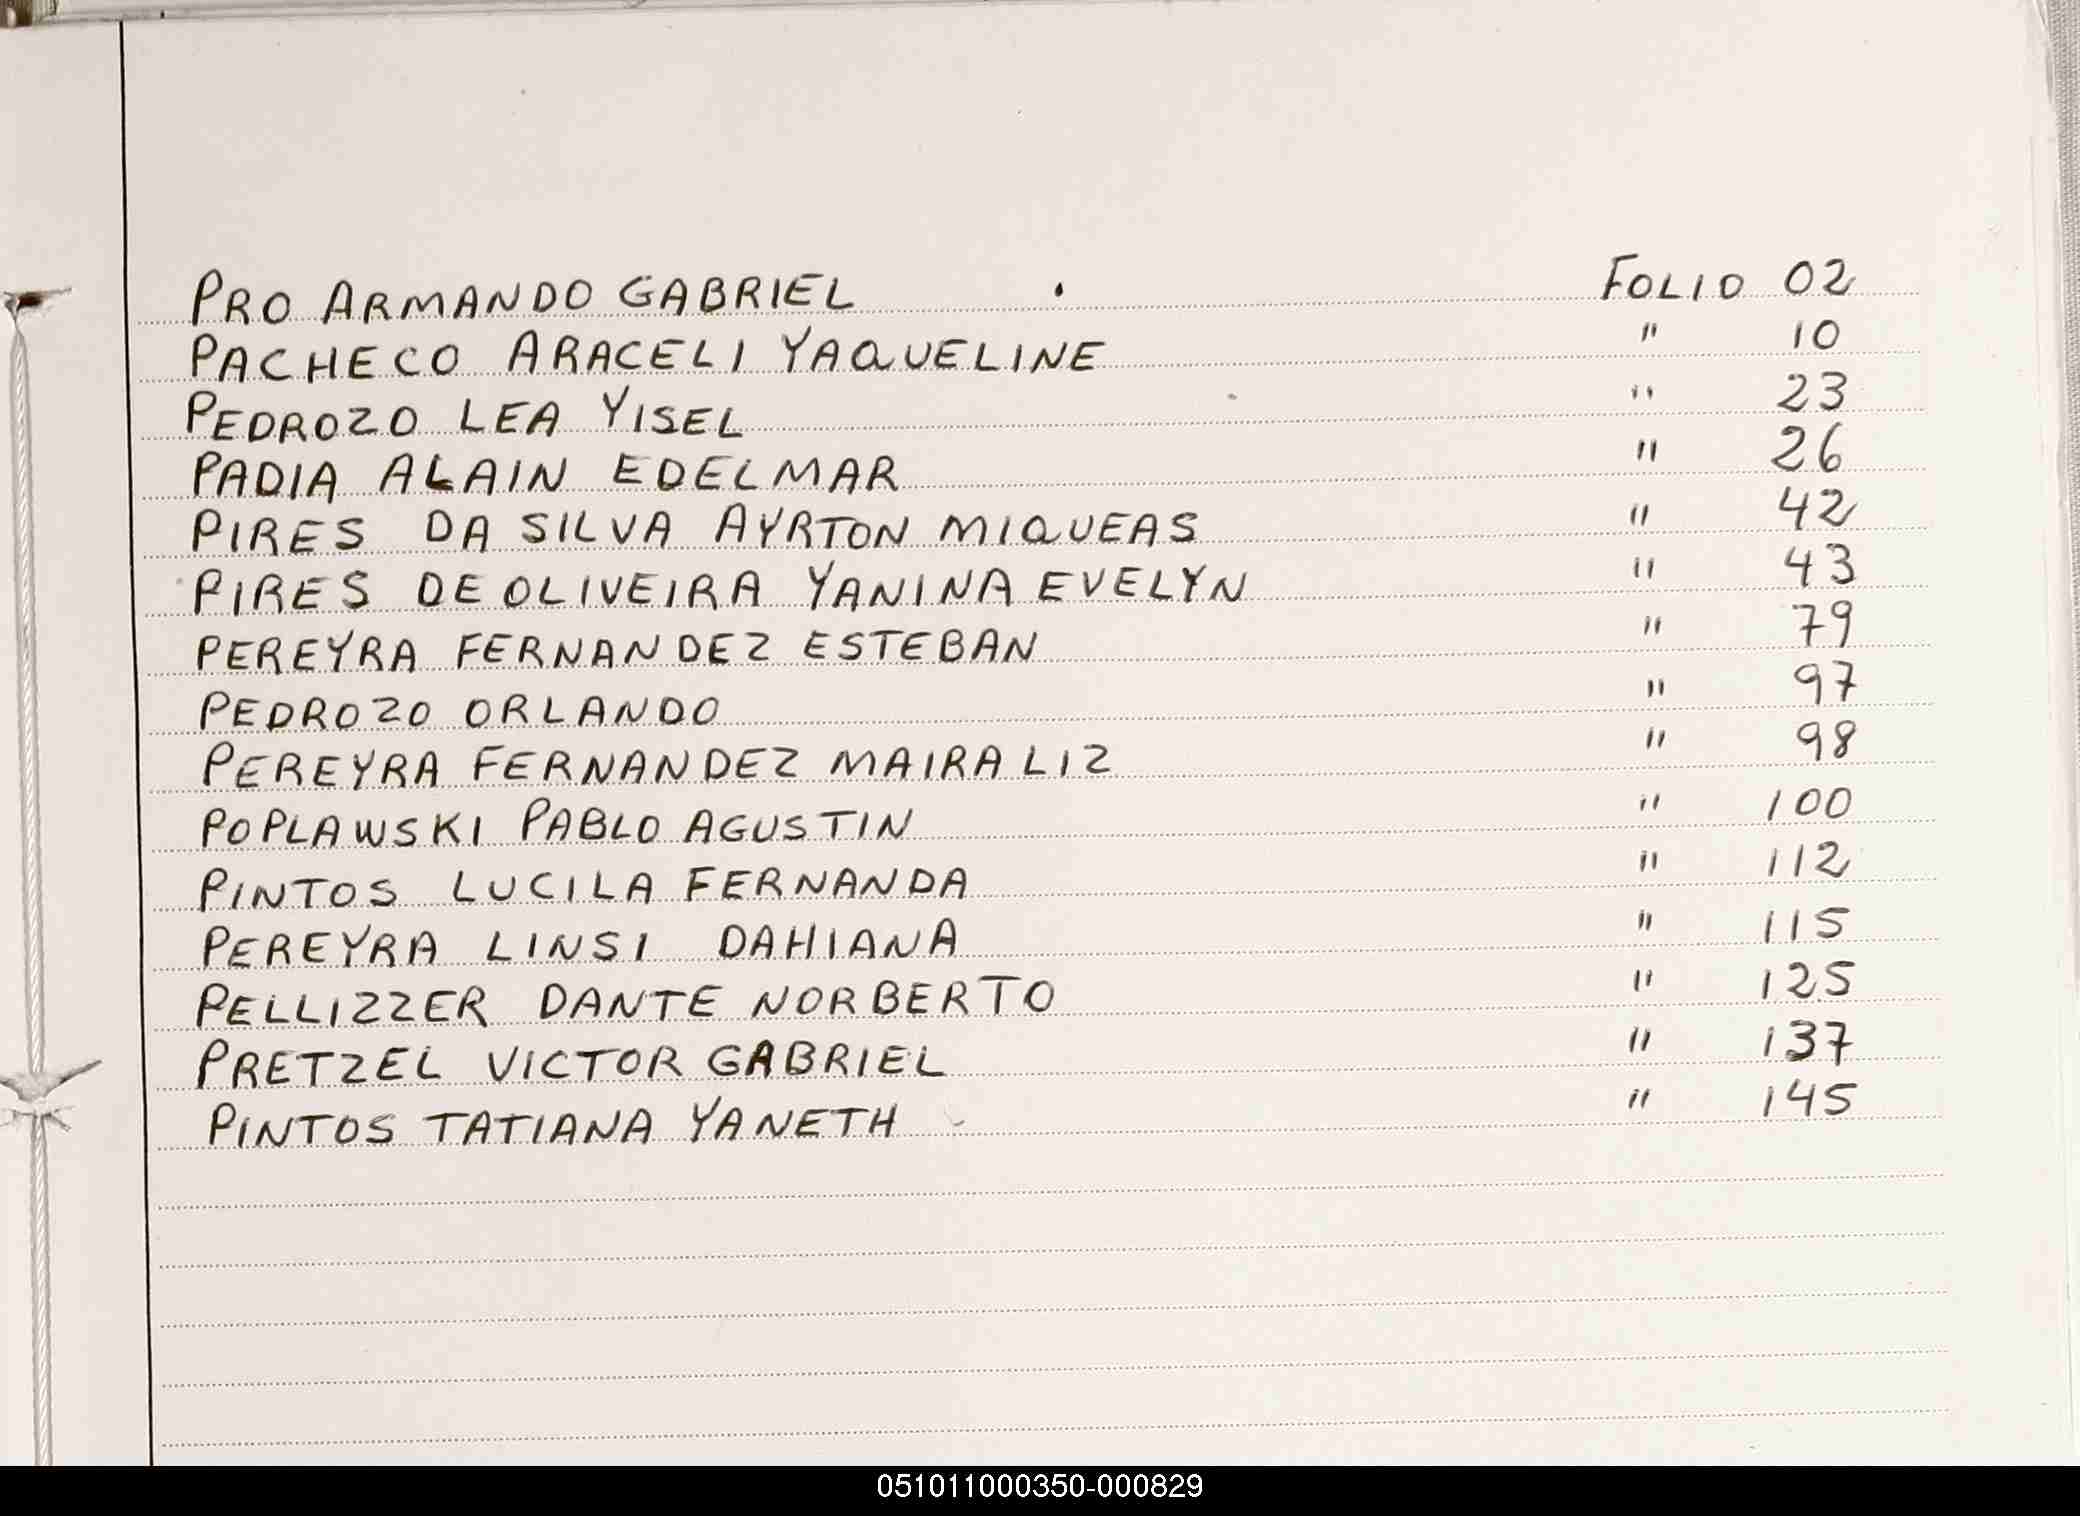 PRO ARMANDO GABRIEL . FOLIO 02
PACHECO ARACELI YAQUELINE " 10
PEDROZO LEA YISEL " 23
PADIA ALAIN EDELMAR " 26
PIRES DA SILVA AYRTON MIQUEAS " 42
PIRES DE OLIVEIRA YANINA EVELYN " 43
PEREYRA FERNANDEZ ESTEBAN " 79
PEDROZO ORLANDO " 97
PEREYRA FERNANDEZ MAIRA LIZ " 98
POPLAWSKI PABLO AGUSTIN " 100
PINTOS LUCILA FERNANDA " 112
PEREYRA LINSI DAHIANA " 115
PELLIZZER DANTE NORBERTO " 125
PRETZEL VICTOR GABRIEL " 137
PINTOS TATIANA YANETH " 145
051011000350-000829